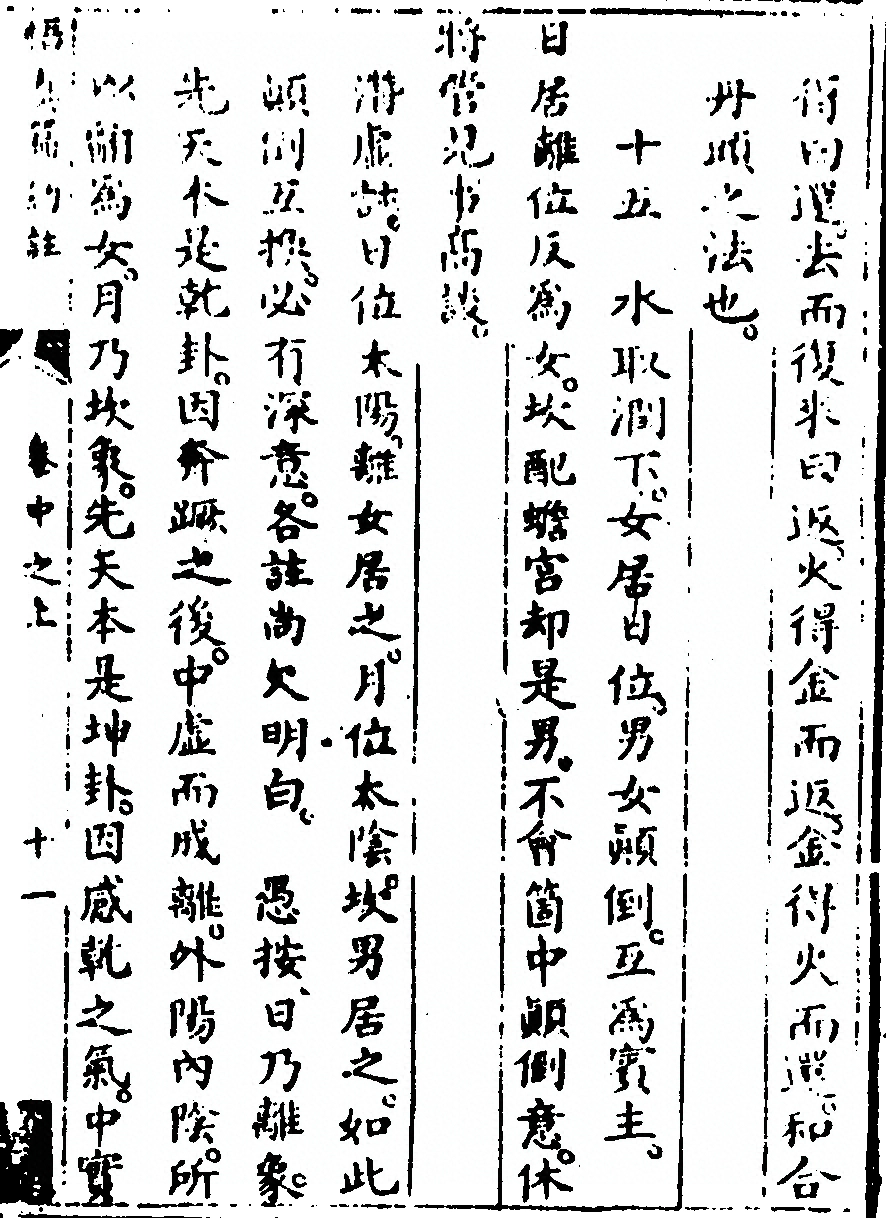 得曰還。去而復來曰返。火得金而返。金得火而還。和合
丹頭之法也。
十五 水取潤下。女居日位。男女顛倒。互爲賓主。
日居離位反爲女。坎配蟾宮却是男。不會箇中顛倒意。休
將管見事高談。
潛虛註。日位太陽。離女居之。月位太陰。坎男居之。如此
顛倒互換。必有深意。各註尚欠明白。 愚按、日乃離象。
先天本是乾卦。因奔蹶之後。中虛而成離。外陽內陰。所
以謂爲女。月乃坎象。先天本是坤卦。因感乾之氣。中實
悟真篇約註 卷中之上 十一